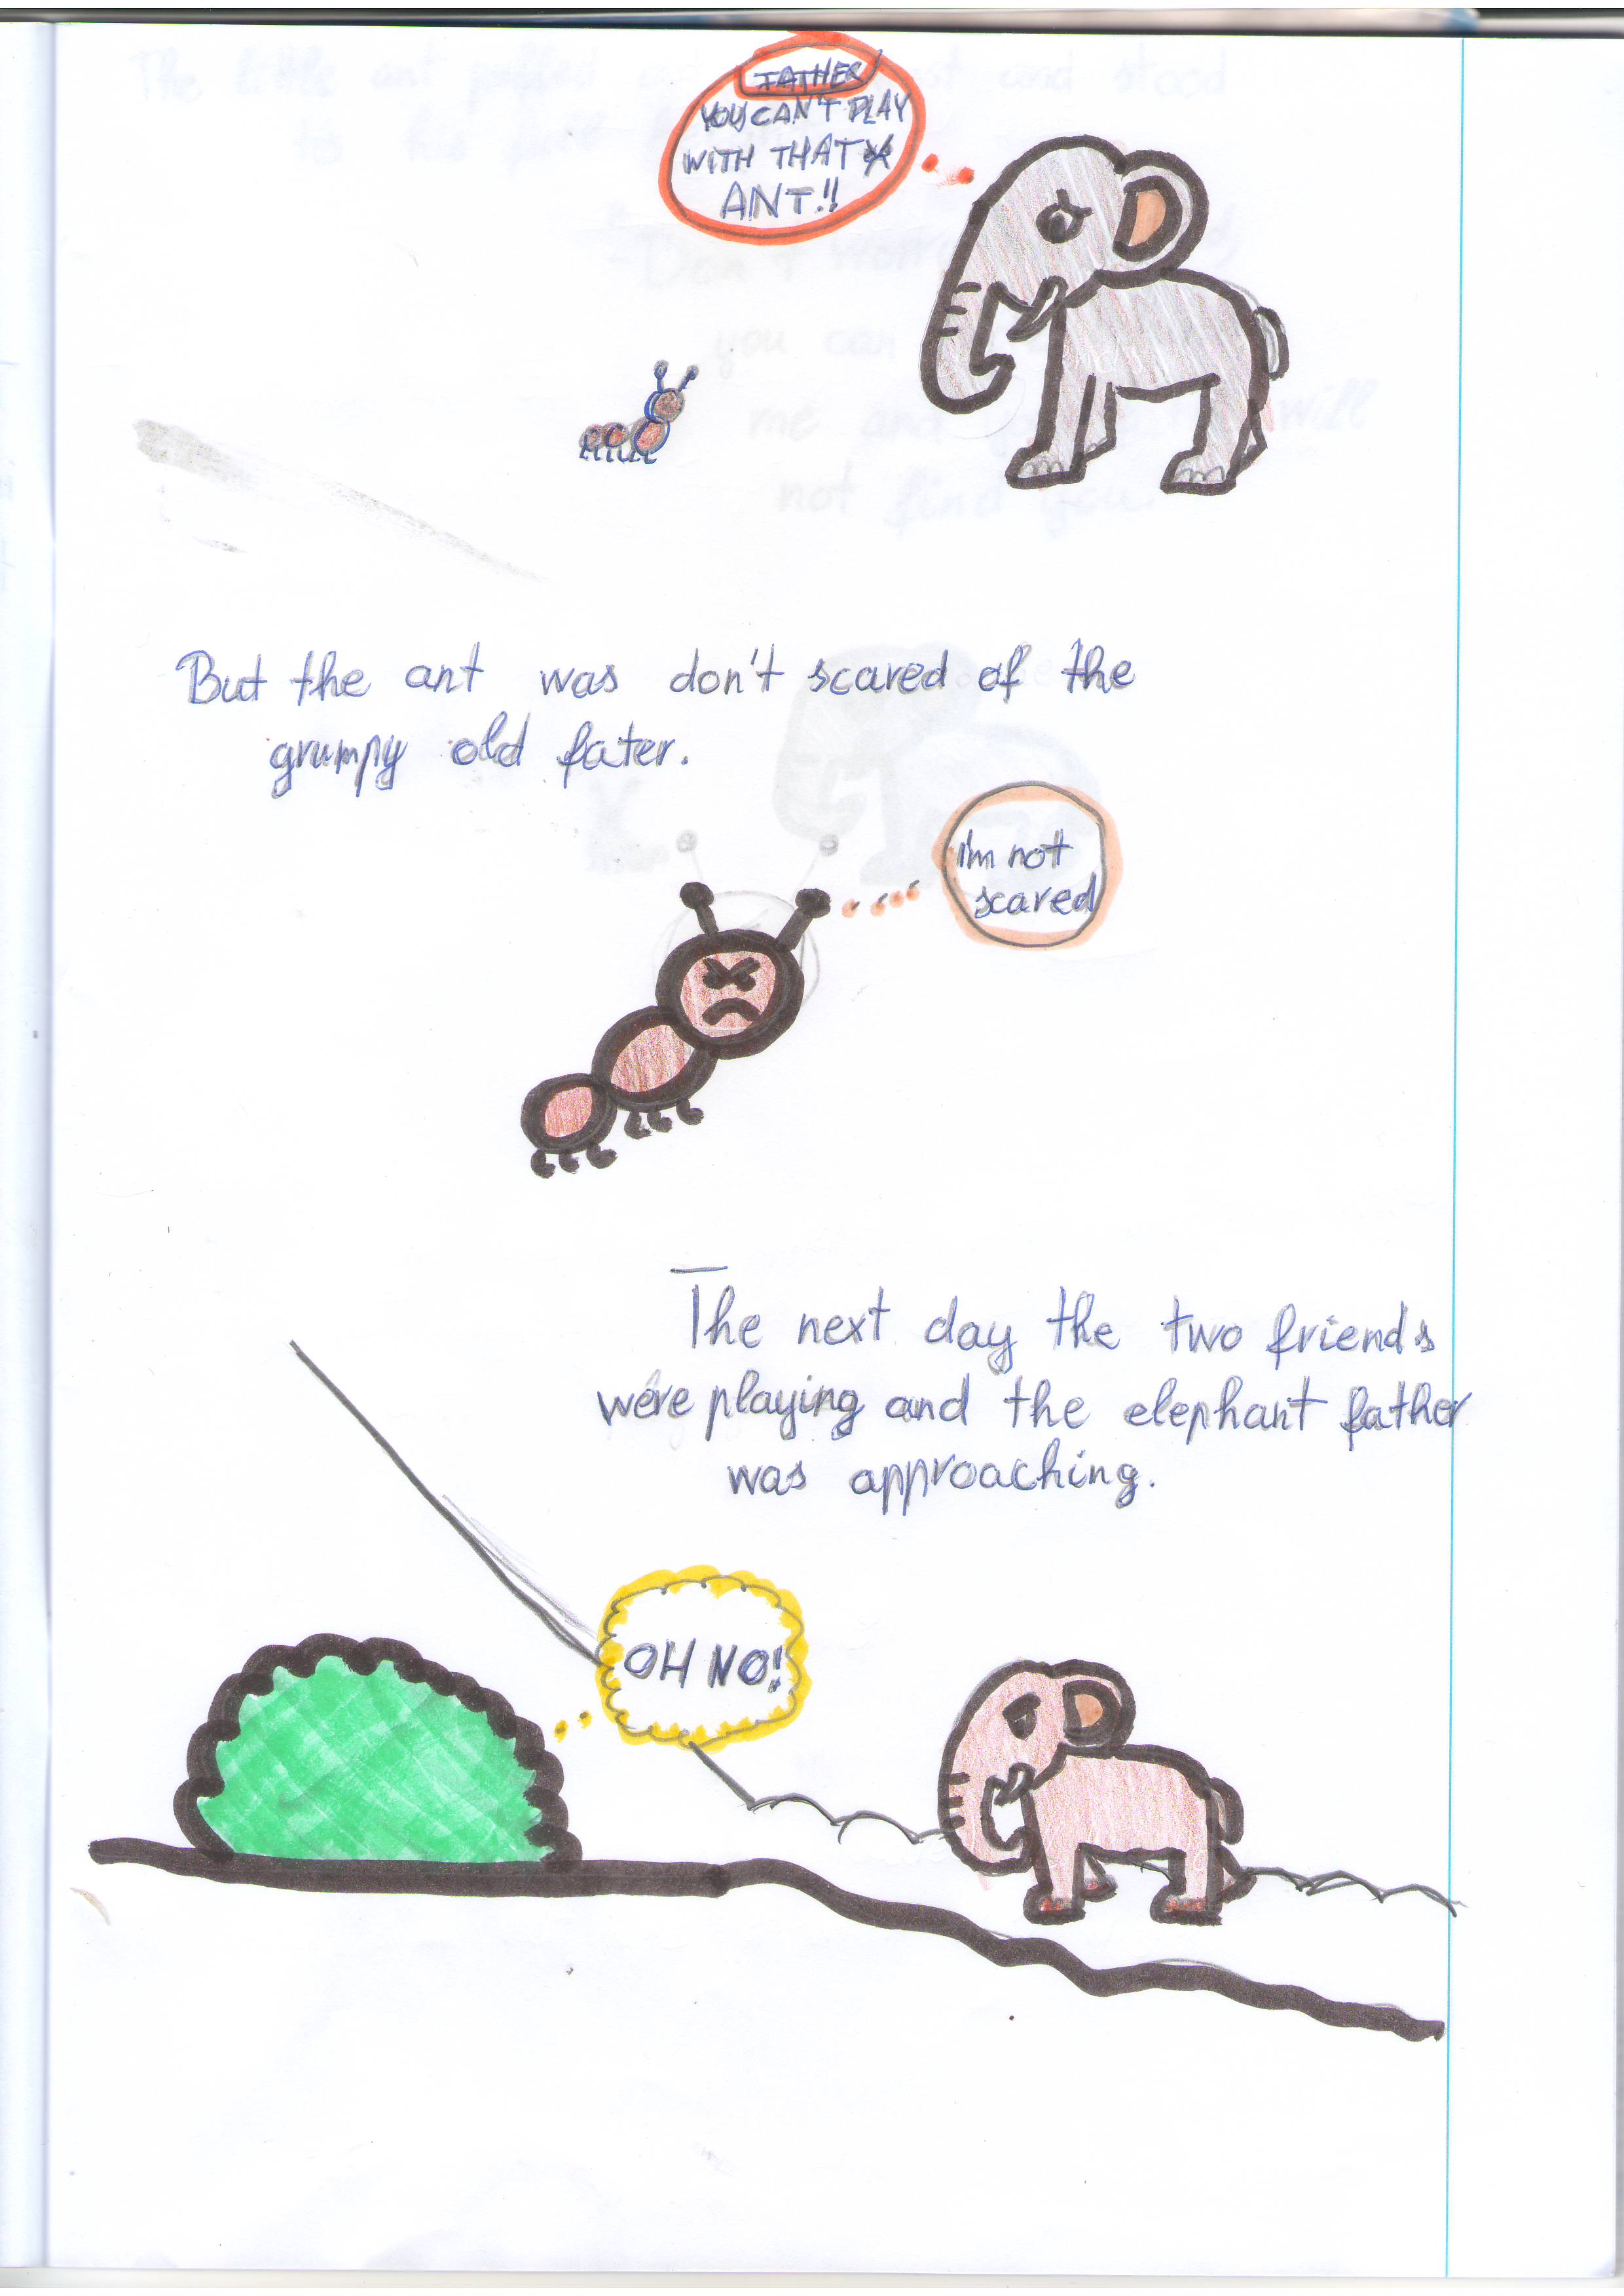 FATHER
YOU CAN'T PLAY
WITH THAT
ANT!!
But the ant was don't scared of the
grumpy old fater.
i'm not
scared
The next day the two friends
were playing and the elephant father
was approaching.
OH NO!